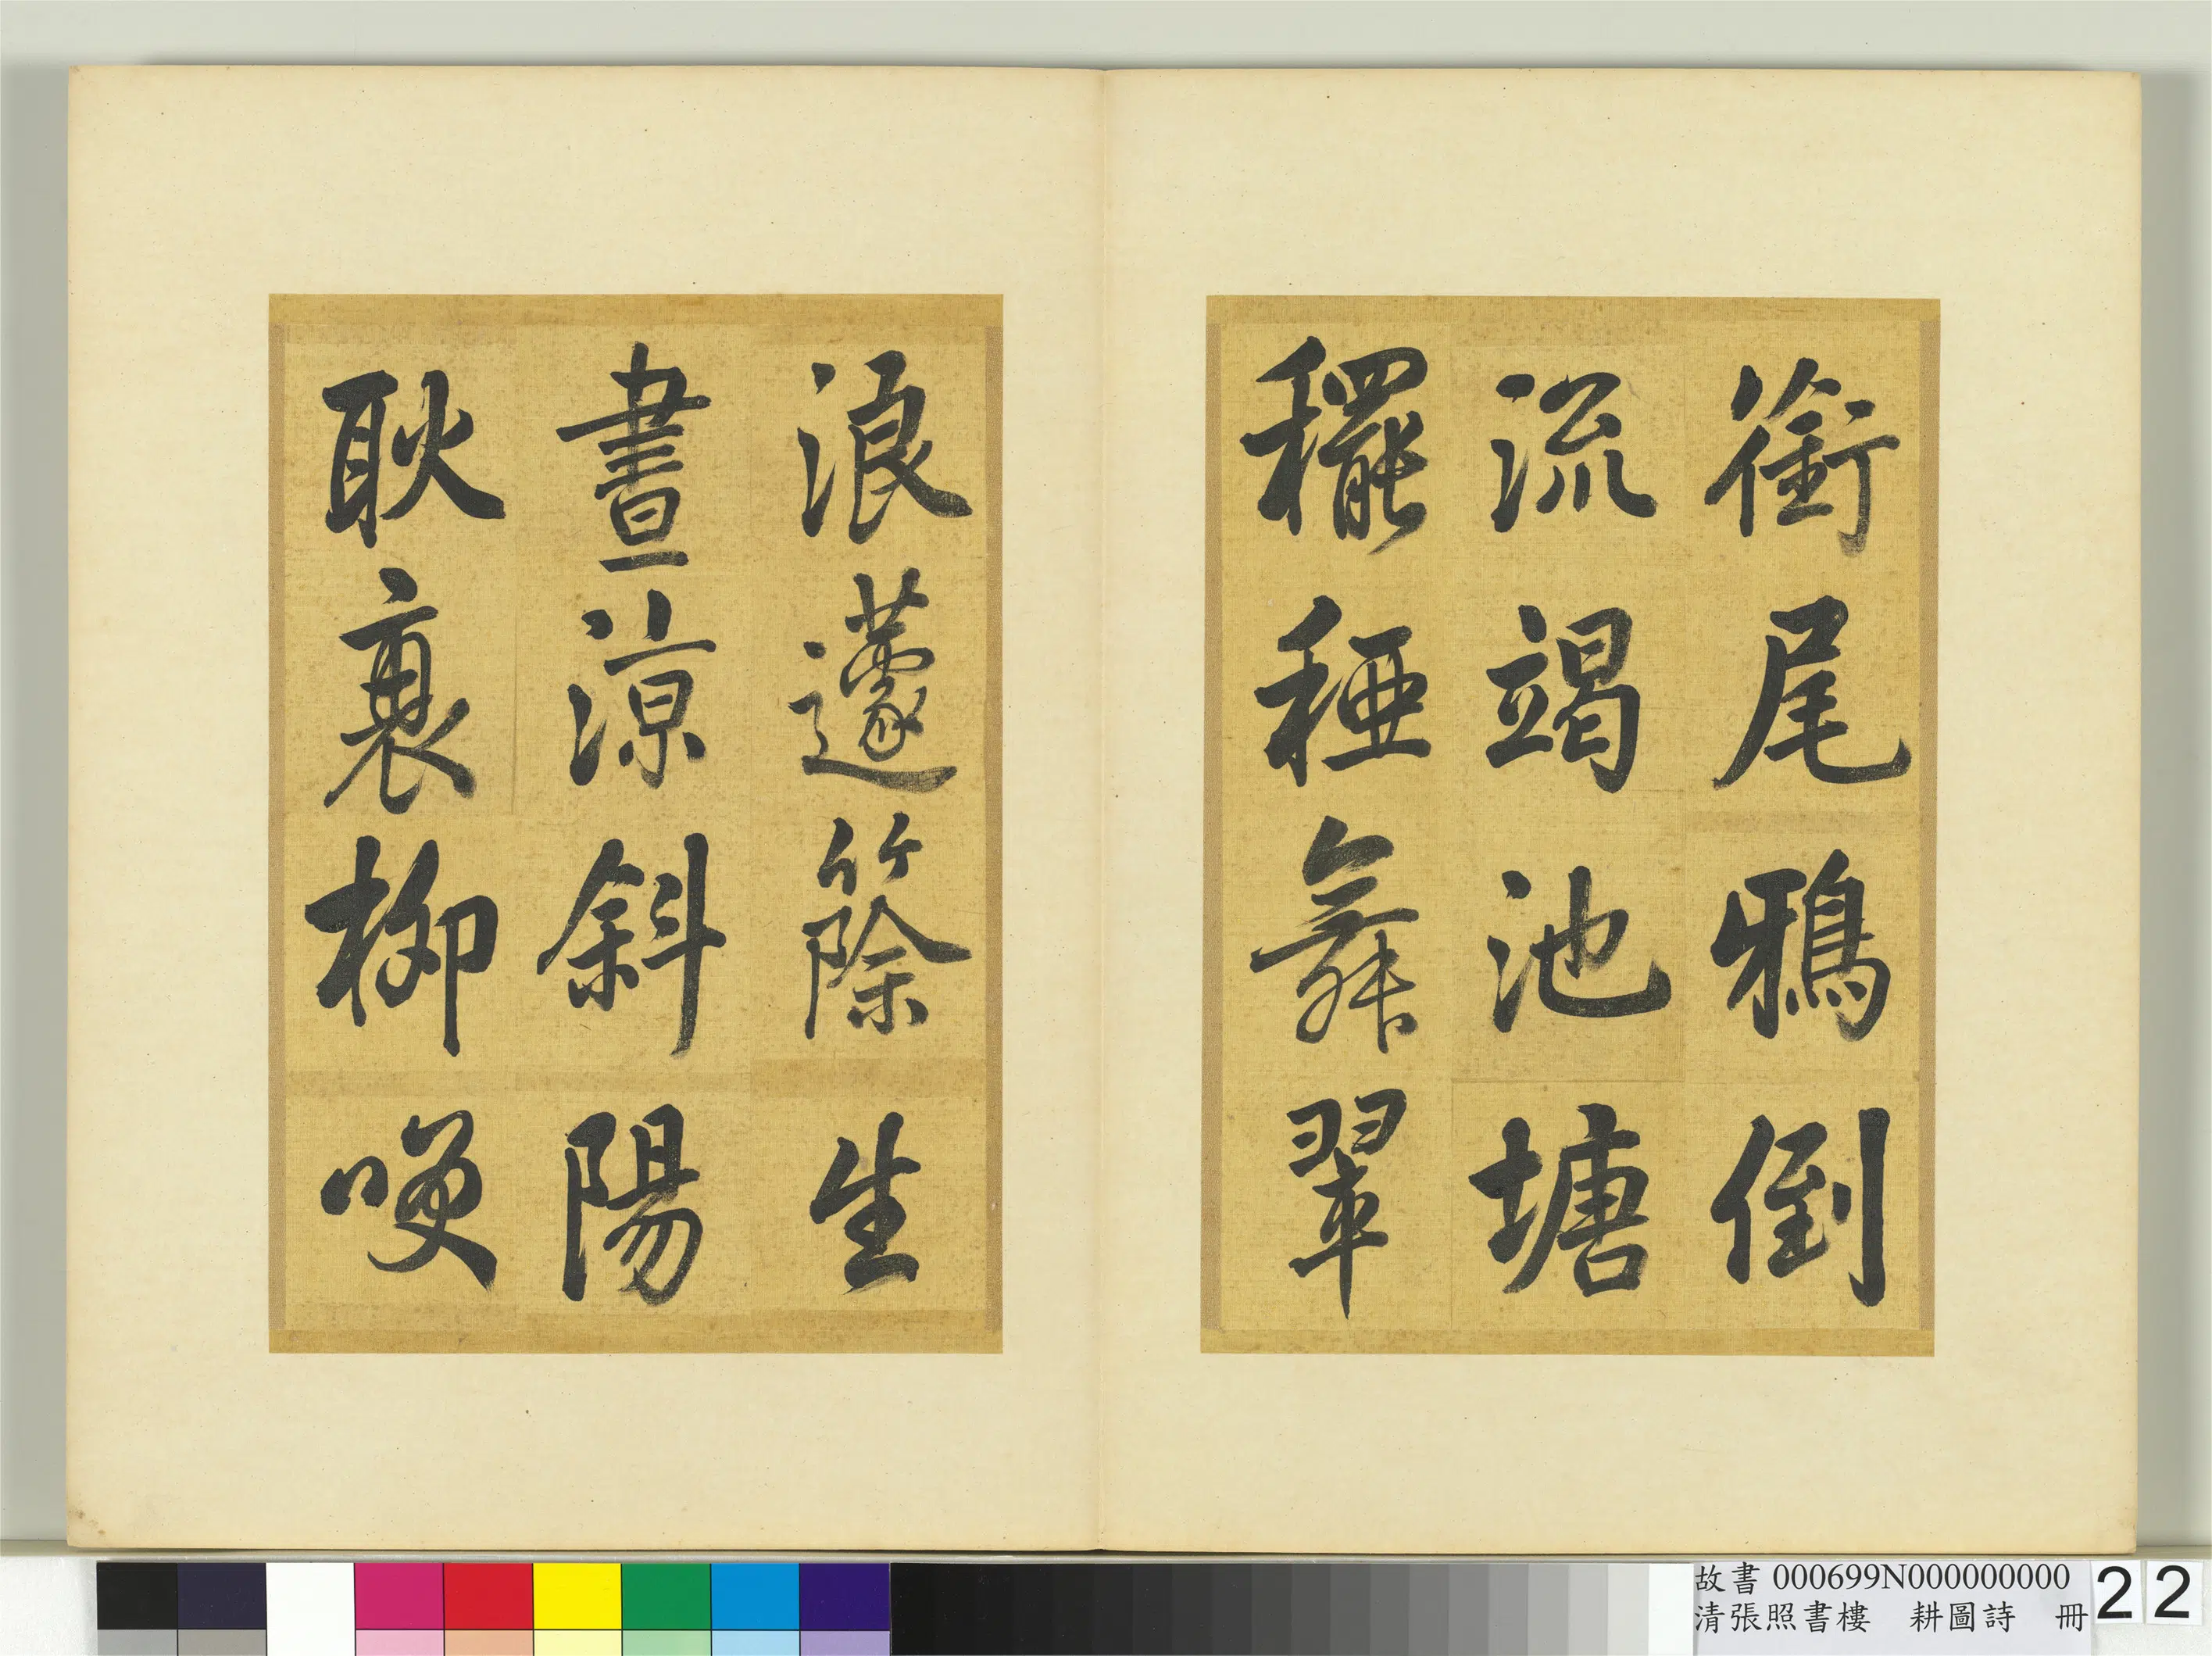 銜尾鴉倒
流竭池塘
䆉稏舞翠
浪蘧篨生
晝涼斜陽
耿衰柳𠷺
故書 000699N000000000
清張照書樓 耕圖詩 冊
22